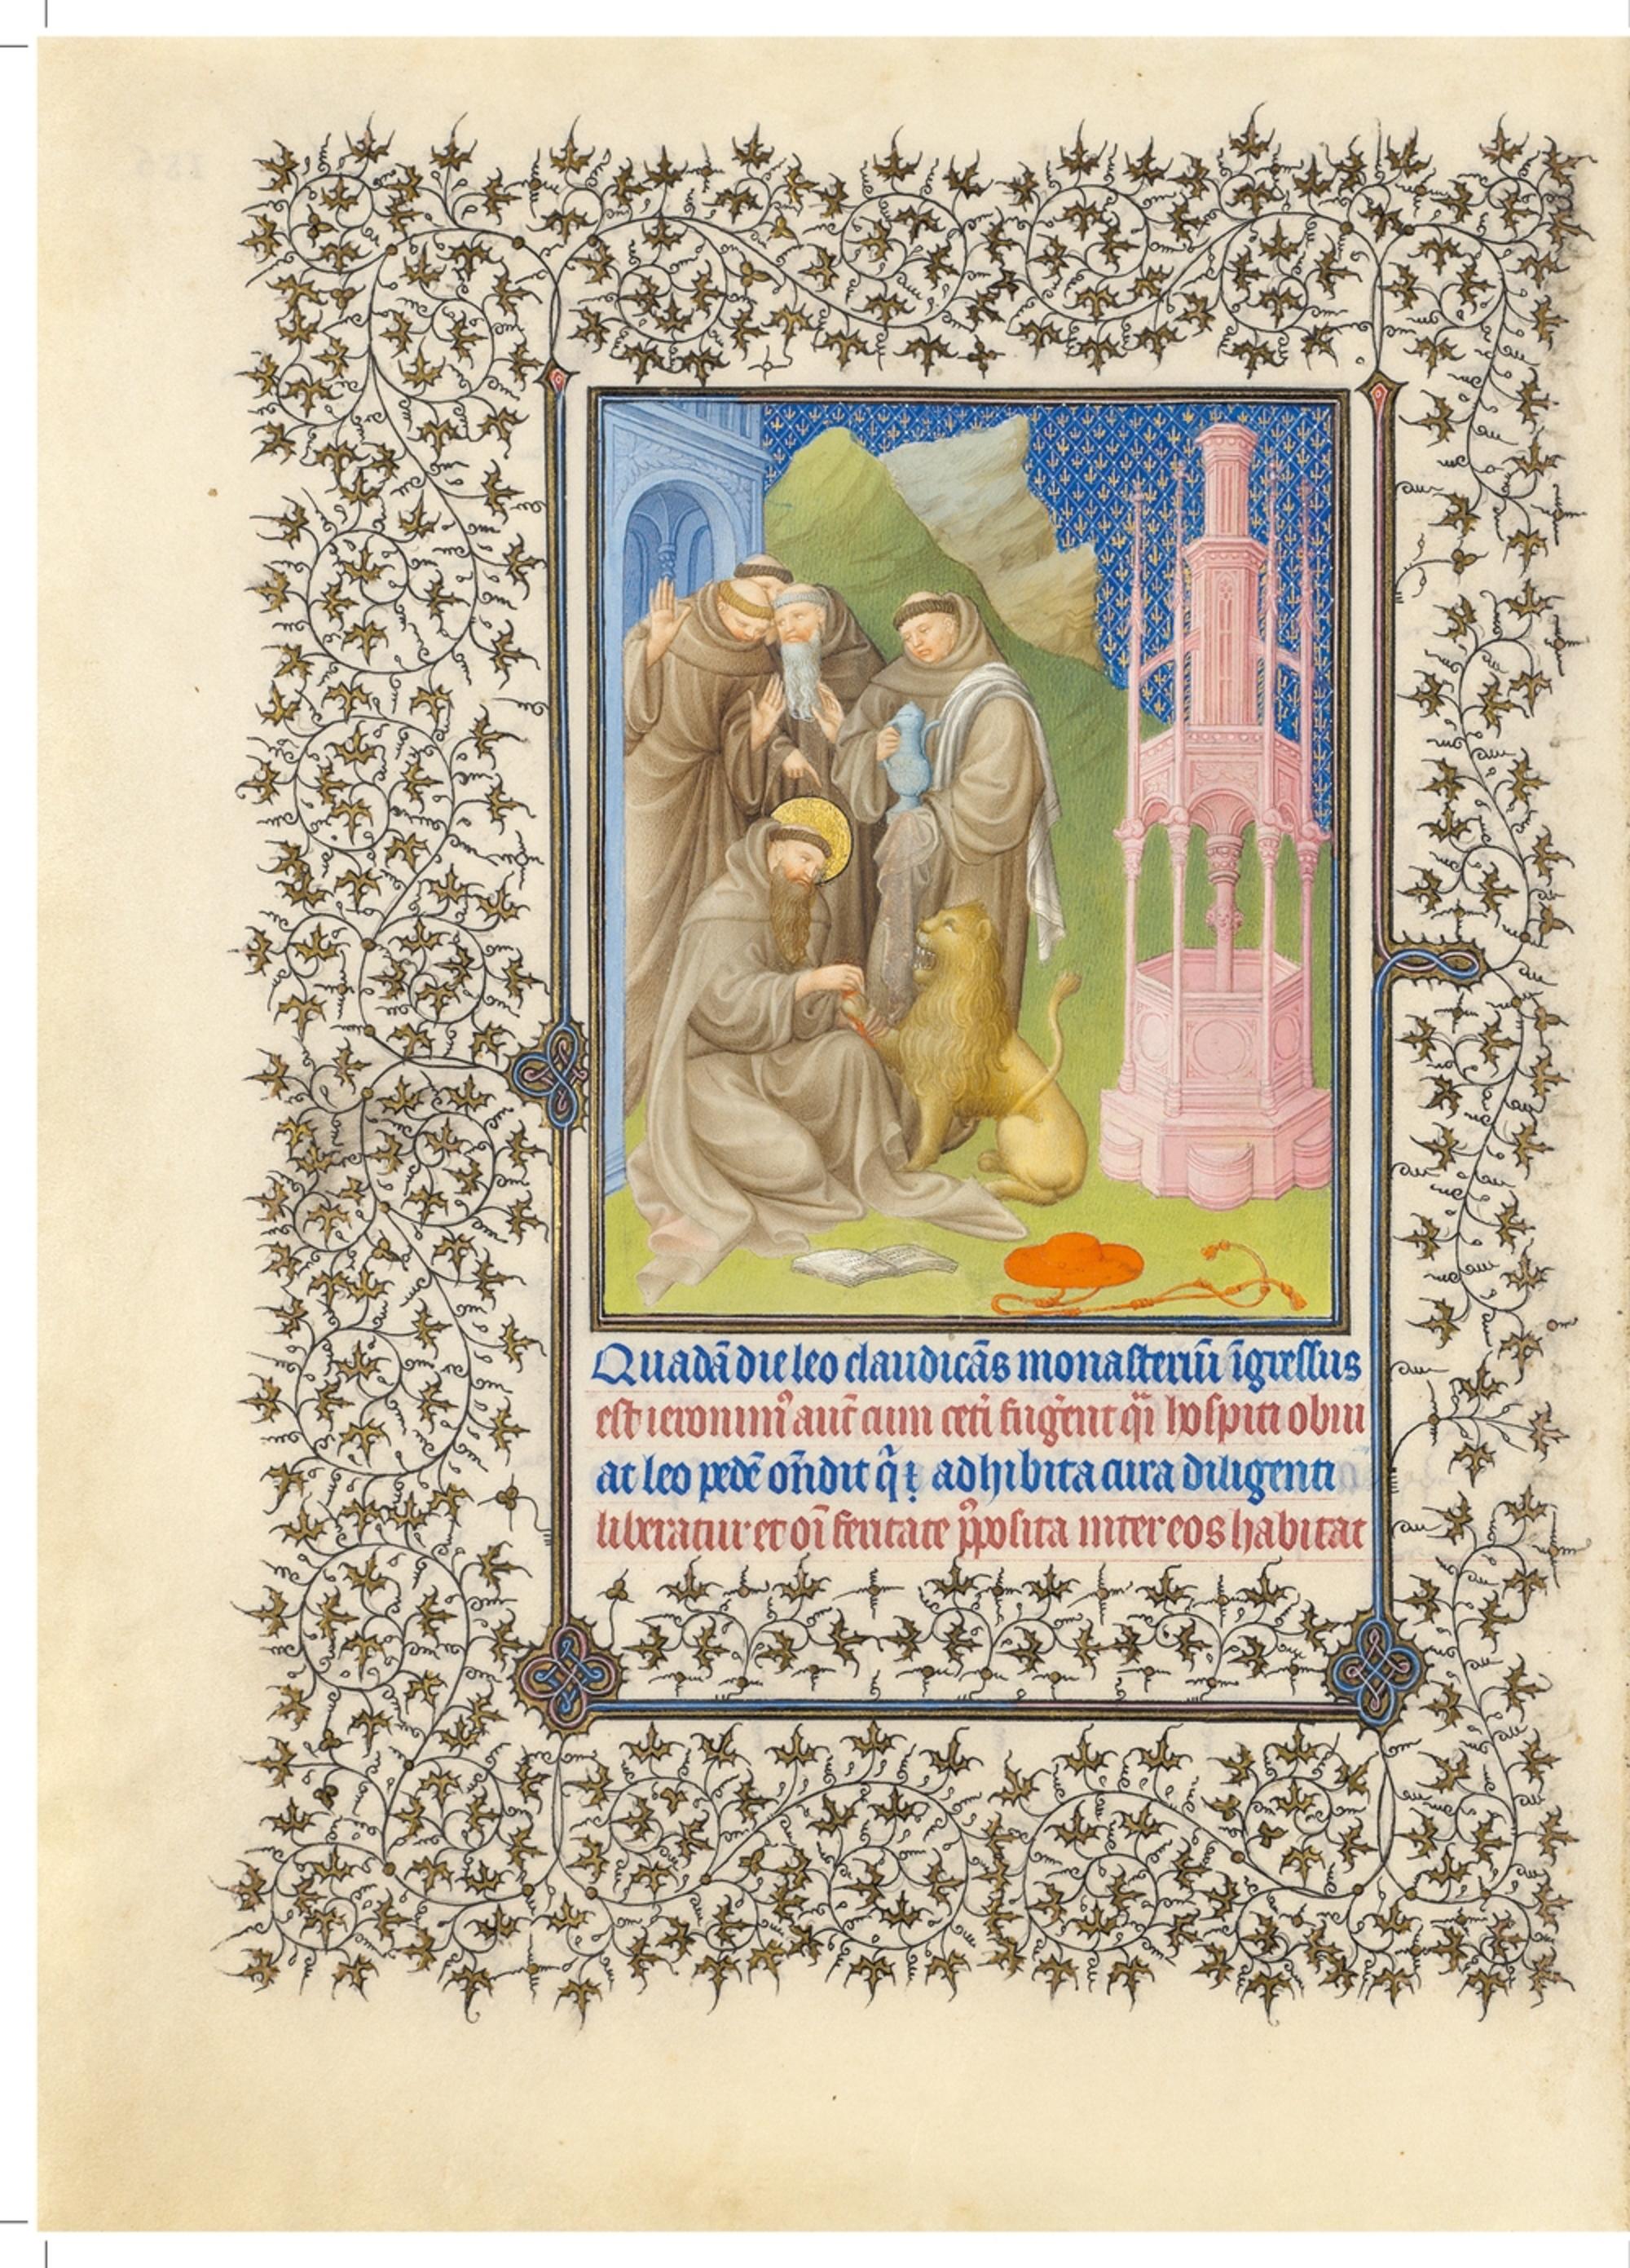 Quadā die leo claudicās monasteriū īgressus
est ieronimꝰ aut̄ cum ceti fugerēt q̄i hospiti obiu
at leo pedē ōn̄dit q̄ ⁊ adhibita cura diligenti
liberatur et oī feritate p̄posita inter eos habitat